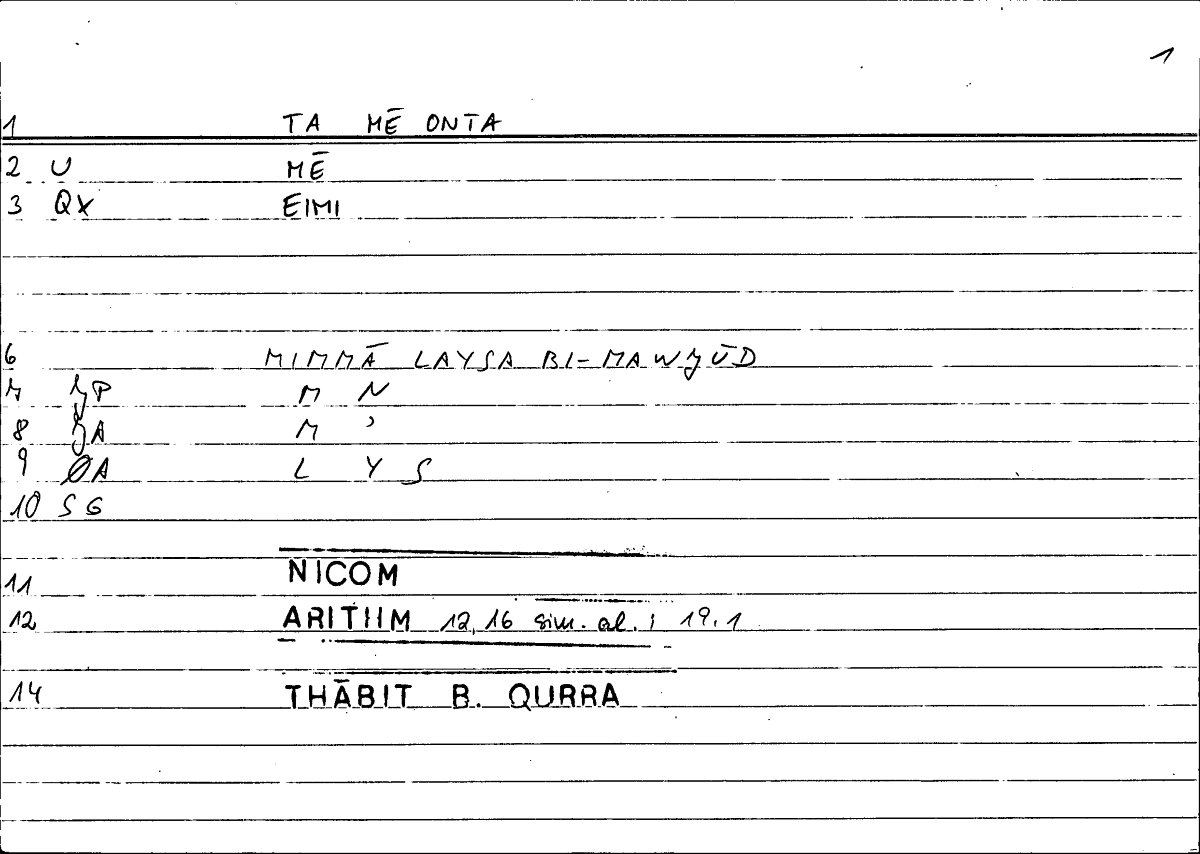 1
1 TA MĒ ONTA
2 U MĒ
3 QX EIMI
6 MIMMĀ LAYSA BI-MAWȷŪD
7 ȷP M N
8 ȷA M ʾ
9 ØA L Y S
10 SG
11 NICOM
12 ARITHM 12,16 sim. al. i 19.1
14 THĀBIT B. QURRA